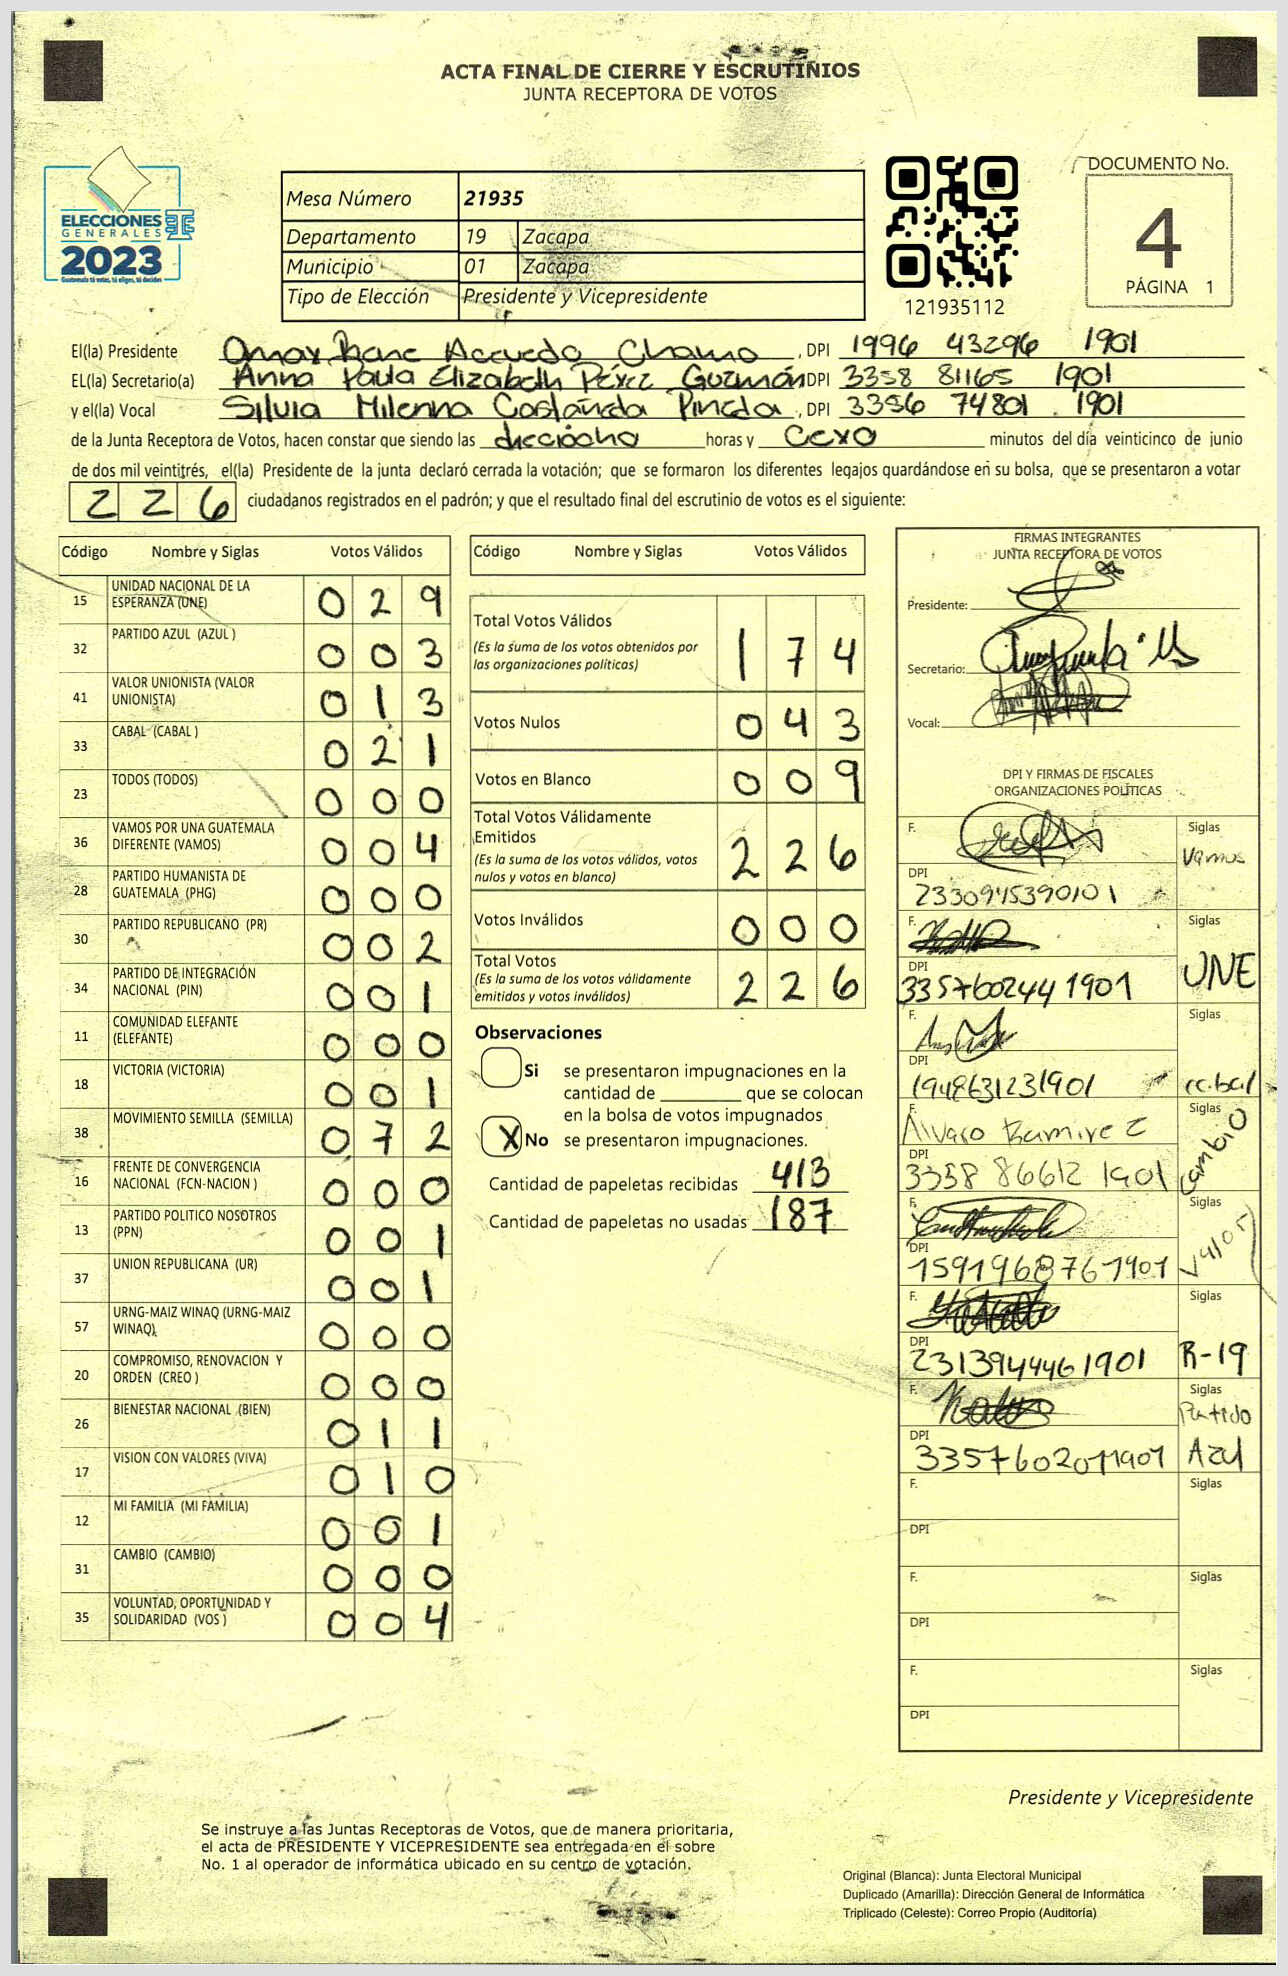 ACTA FINAL DE CIERRE Y ESCRUTINIOS
JUNTA RECEPTORA DE VOTOS
ELECCIONES
GENERALES
2023
Guatemala tú votas, tú eliges, tú decides
Mesa Número 21935
Departamento 19 Zacapa
Municipio 01 Zacapa
Tipo de Elección Presidente y Vicepresidente
121935112
DOCUMENTO No.
4
PÁGINA 1
El(la) Presidente Omar Acevedo , DPI 1996 43296 1901
EL(la) Secretario(a) Anna Paula Elizabeth Pérez Guzmán DPI 3358 81165 1901
y el(la) Vocal Silvia Milenna Castañeda Pineda , DPI 3356 74801 1901
de la Junta Receptora de Votos, hacen constar que siendo las dieciocho horas y cero minutos del día veinticinco de junio
de dos mil veintitrés, el(la) Presidente de la junta declaró cerrada la votación; que se formaron los diferentes legajos quardándose en su bolsa, que se presentaron a votar
226 ciudadanos registrados en el padrón; y que el resultado final del escrutinio de votos es el siguiente:
Código Nombre y Siglas Votos Válidos
15 UNIDAD NACIONAL DE LA ESPERANZA (UNE) 029
32 PARTIDO AZUL (AZUL ) 003
41 VALOR UNIONISTA (VALOR UNIONISTA) 013
33 CABAL (CABAL ) 021
23 TODOS (TODOS) 000
36 VAMOS POR UNA GUATEMALA DIFERENTE (VAMOS) 004
28 PARTIDO HUMANISTA DE GUATEMALA (PHG) 000
30 PARTIDO REPUBLICANO (PR) 002
34 PARTIDO DE INTEGRACIÓN NACIONAL (PIN) 001
11 COMUNIDAD ELEFANTE (ELEFANTE) 000
18 VICTORIA (VICTORIA) 001
38 MOVIMIENTO SEMILLA (SEMILLA) 072
16 FRENTE DE CONVERGENCIA NACIONAL (FCN-NACION ) 000
13 PARTIDO POLITICO NOSOTROS (PPN) 001
37 UNION REPUBLICANA (UR) 001
57 URNG-MAIZ WINAQ (URNG-MAIZ WINAQ) 000
20 COMPROMISO, RENOVACION Y ORDEN (CREO ) 000
26 BIENESTAR NACIONAL (BIEN) 011
17 VISION CON VALORES (VIVA) 010
12 MI FAMILIA (MI FAMILIA) 001
31 CAMBIO (CAMBIO) 000
35 VOLUNTAD, OPORTUNIDAD Y SOLIDARIDAD (VOS ) 004
Código Nombre y Siglas Votos Válidos
Total Votos Válidos 174
(Es la suma de los votos obtenidos por las organizaciones políticas)
Votos Nulos 043
Votos en Blanco 009
Total Votos Válidamente Emitidos 226
(Es la suma de los votos válidos, votos nulos y votos en blanco)
Votos Inválidos 000
Total Votos 226
(Es la suma de los votos válidamente emitidos y votos inválidos)
Observaciones
Si se presentaron impugnaciones en la
cantidad de ________ que se colocan
en la bolsa de votos impugnados
X No se presentaron impugnaciones.
Cantidad de papeletas recibidas 413
Cantidad de papeletas no usadas 187
FIRMAS INTEGRANTES
JUNTA RECEPTORA DE VOTOS
Presidente:
Secretario:
Vocal:
DPI Y FIRMAS DE FISCALES
ORGANIZACIONES POLÍTICAS
F. Siglas Vamos
DPI 2330945390101
F. Siglas UNE
DPI 3357602441901
F. Siglas
DPI 1948631231901
F. Alvaro Ramirez Siglas Cambio
DPI 3358 86612 1901
F. Siglas Valor
DPI 1591968761901
F. Siglas R-19
DPI 2313944461901
F. Siglas Partido Azul
DPI 3357602011901
F. Siglas
DPI
F. Siglas
DPI
F. Siglas
DPI
Presidente y Vicepresidente
Se instruye a las Juntas Receptoras de Votos, que de manera prioritaria,
el acta de PRESIDENTE Y VICEPRESIDENTE sea entregada en el sobre
No. 1 al operador de informática ubicado en su centro de votación.
Original (Blanca): Junta Electoral Municipal
Duplicado (Amarilla): Dirección General de Informática
Triplicado (Celeste): Correo Propio (Auditoría)